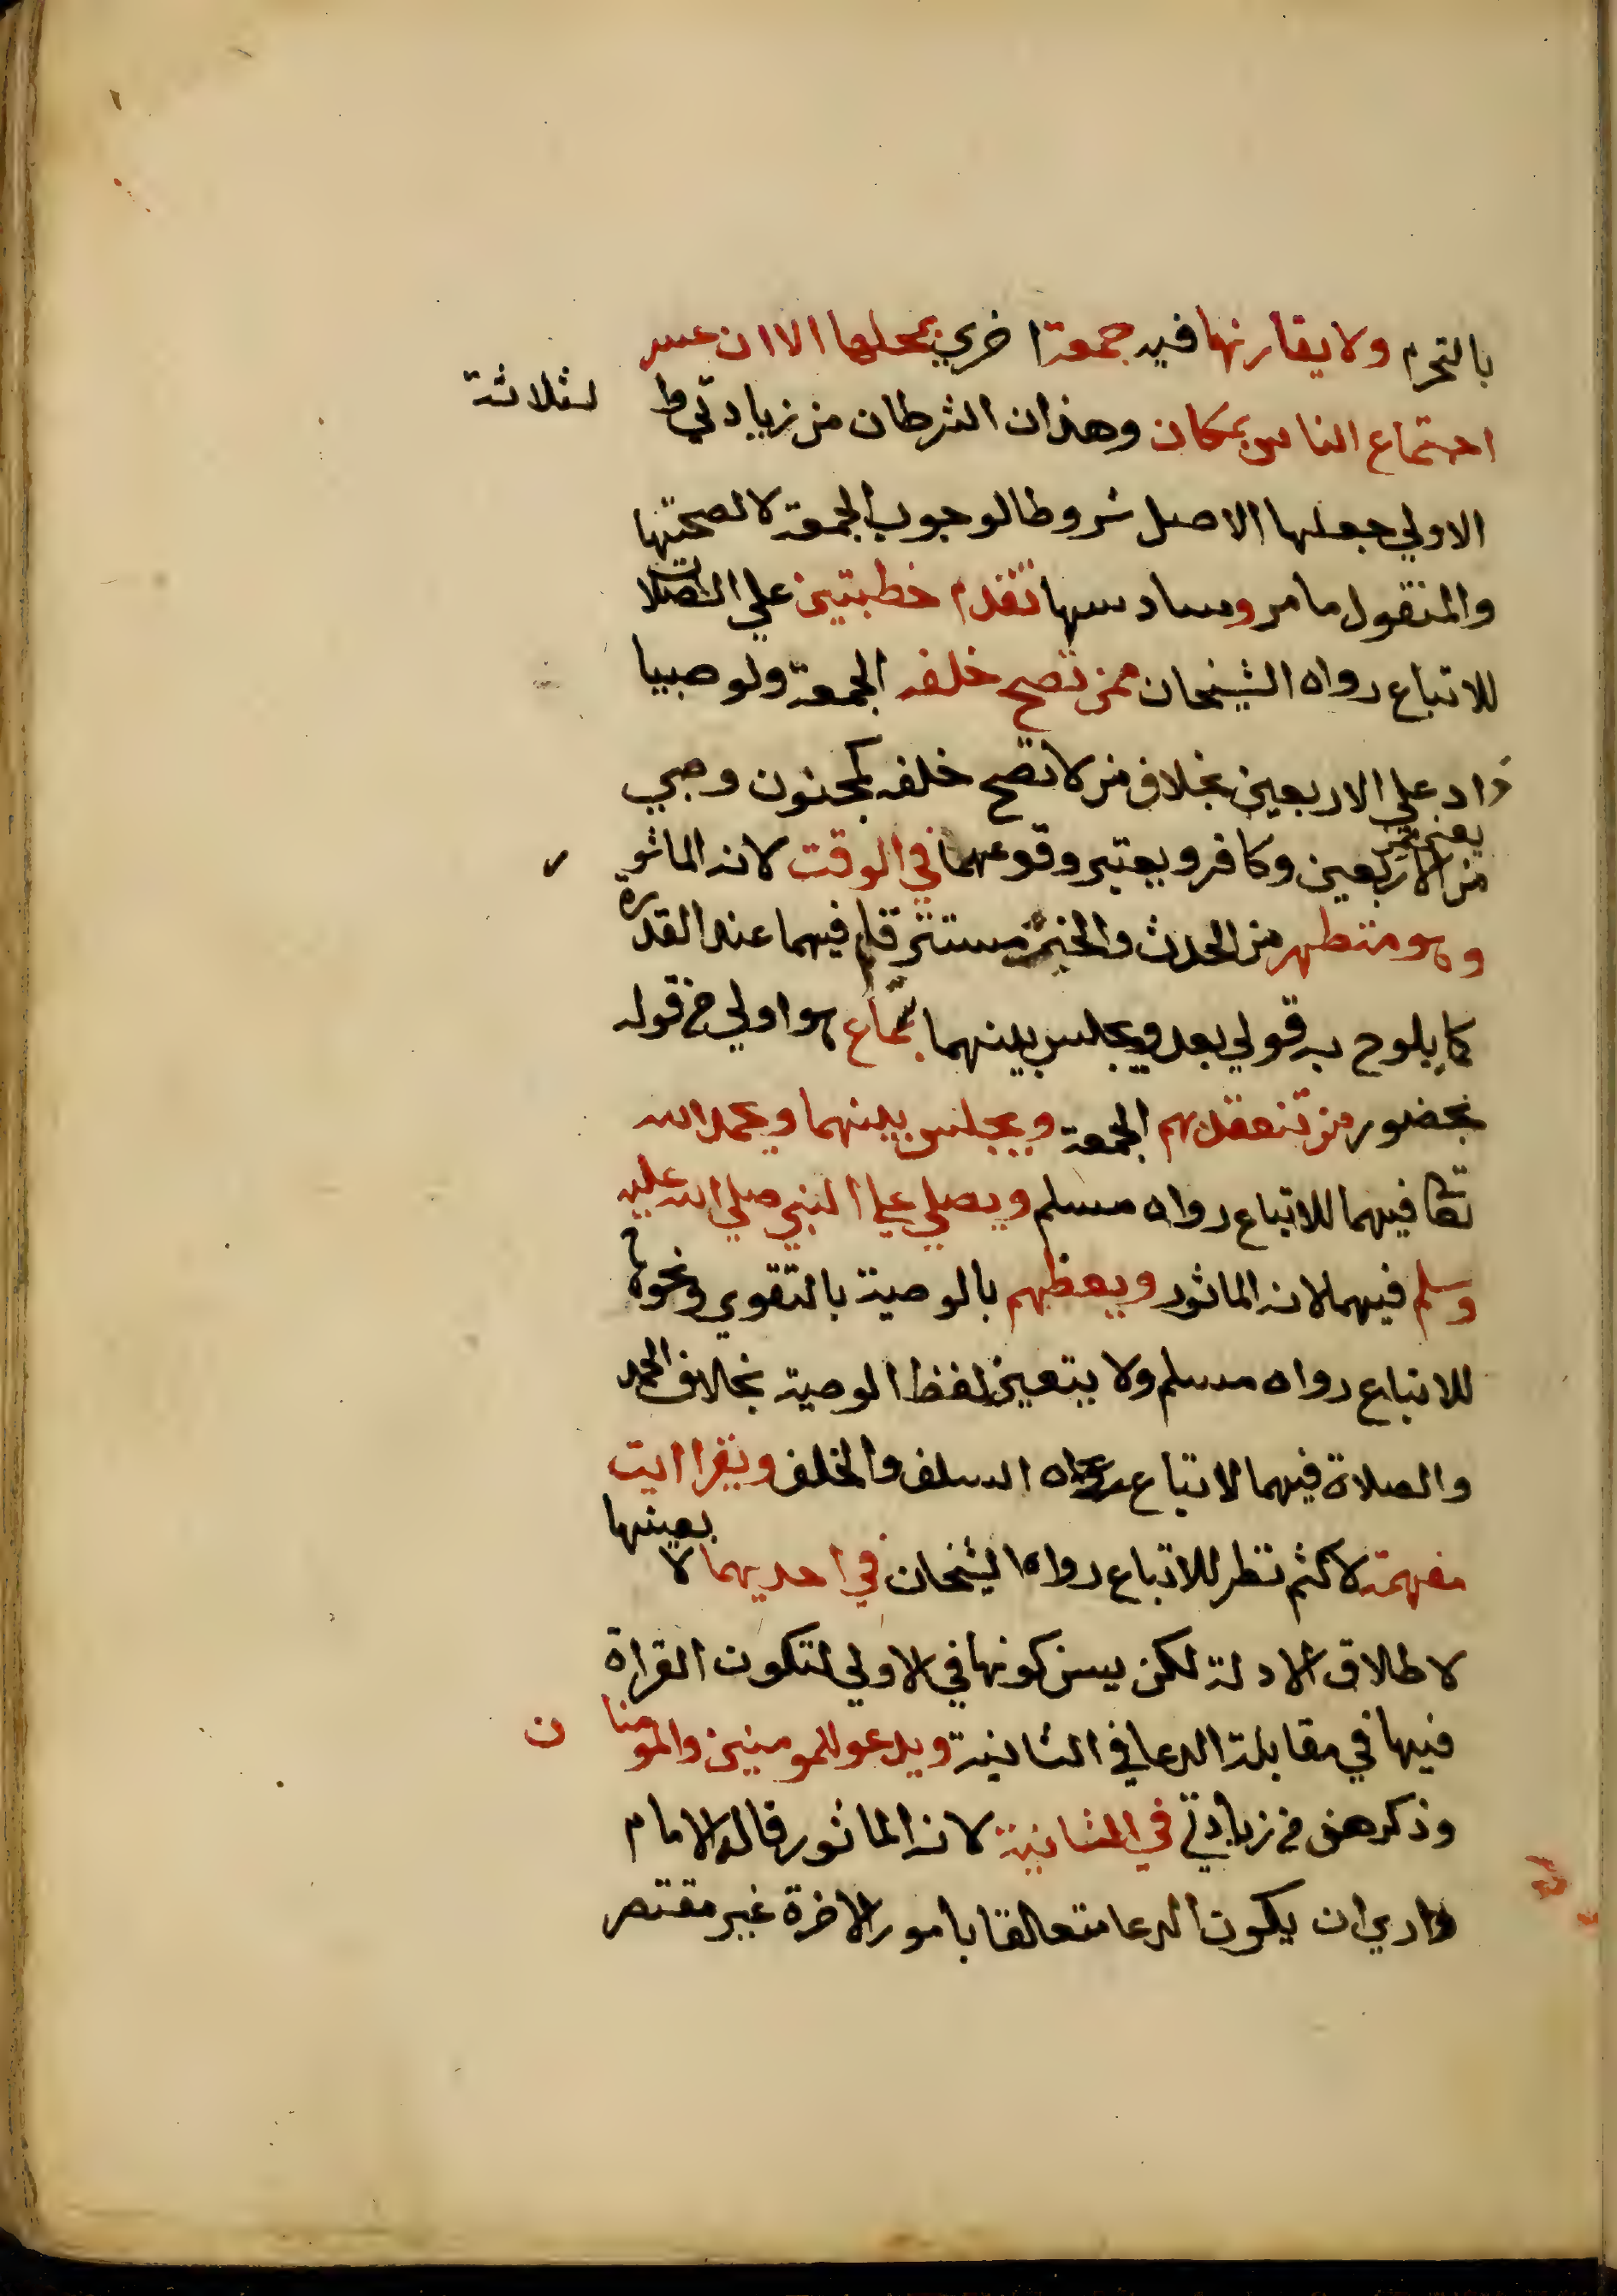 بالتحرم ولا يقارنها فيه جمعة اخري بمحلها الا ان عسر
اجتماع الناس بمكان وهذان الشرطان من زيادتي و
لثلاثة
الاولي جعلها الاصل شروطا لوجوب الجمعة لا لصحتها
والمنقول ما مر وسادسها تقدم خطبتين علي الصلاة
للاتباع رواه الشيخان ممن تصح خلفه الجمعة ولو صبيا
زاد علي الاربعين بخلاف من لا تصح خلفه كمجنون وصبي
من الاربعين وكافر ويعتبر وقوعهما في الوقت لانه الماثو
ر
وهو متطهر من الحدث والخبث مستتر قام فيهما عند القدرة
كما يلوح به قولي بعد ويجلس بينهما بسماع هو اولي من قوله
بحضور من تنعقد بهم الجمعة ويجلس بينهما ويحمد الله
تعا فيهما للاتباع رواه مسلم ويصلي علي النبي صلي الله عليه
وسلم فيهما لانه الماثور ويعظهم بالوصية بالتقوي ونحوها
للاتباع رواه مسلم ولا يتعين لفظ الوصية بخلاف الحمد
والصلاة فيهما لاتباع رواه السلف والخلف ويقرا ايت
مفهمة لا كثم نظر للاتباع رواه الشيخان في احديهما لا بعينها
لاطلاق الادلة لكن يسن كونها في الاولي لتكون القراة
فيها في مقابلة الدعا في الثانية ويدعو للمومنين والمومنا
ن
وذكرهن من زيادتي في الثانية لانه الماثور قال الامام
واري ان يكون الدعا متعالقا بامور الاخرة غير مقتصر